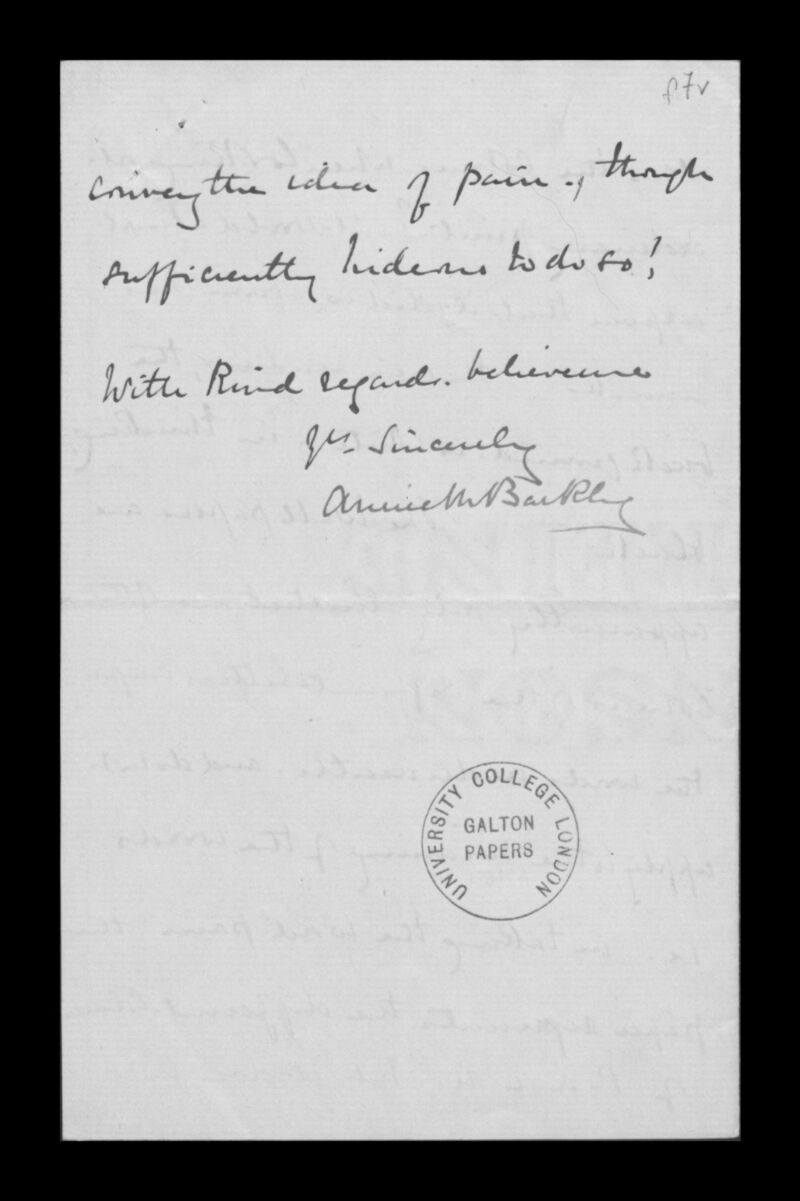 f7v
convey the idea of pain., though
sufficiently hideous to do so!
With Kind regards. believe me
Yrs. Sincerely
Annie M Barkley
UNIVERSITY COLLEGE LONDON
GALTON
PAPERS